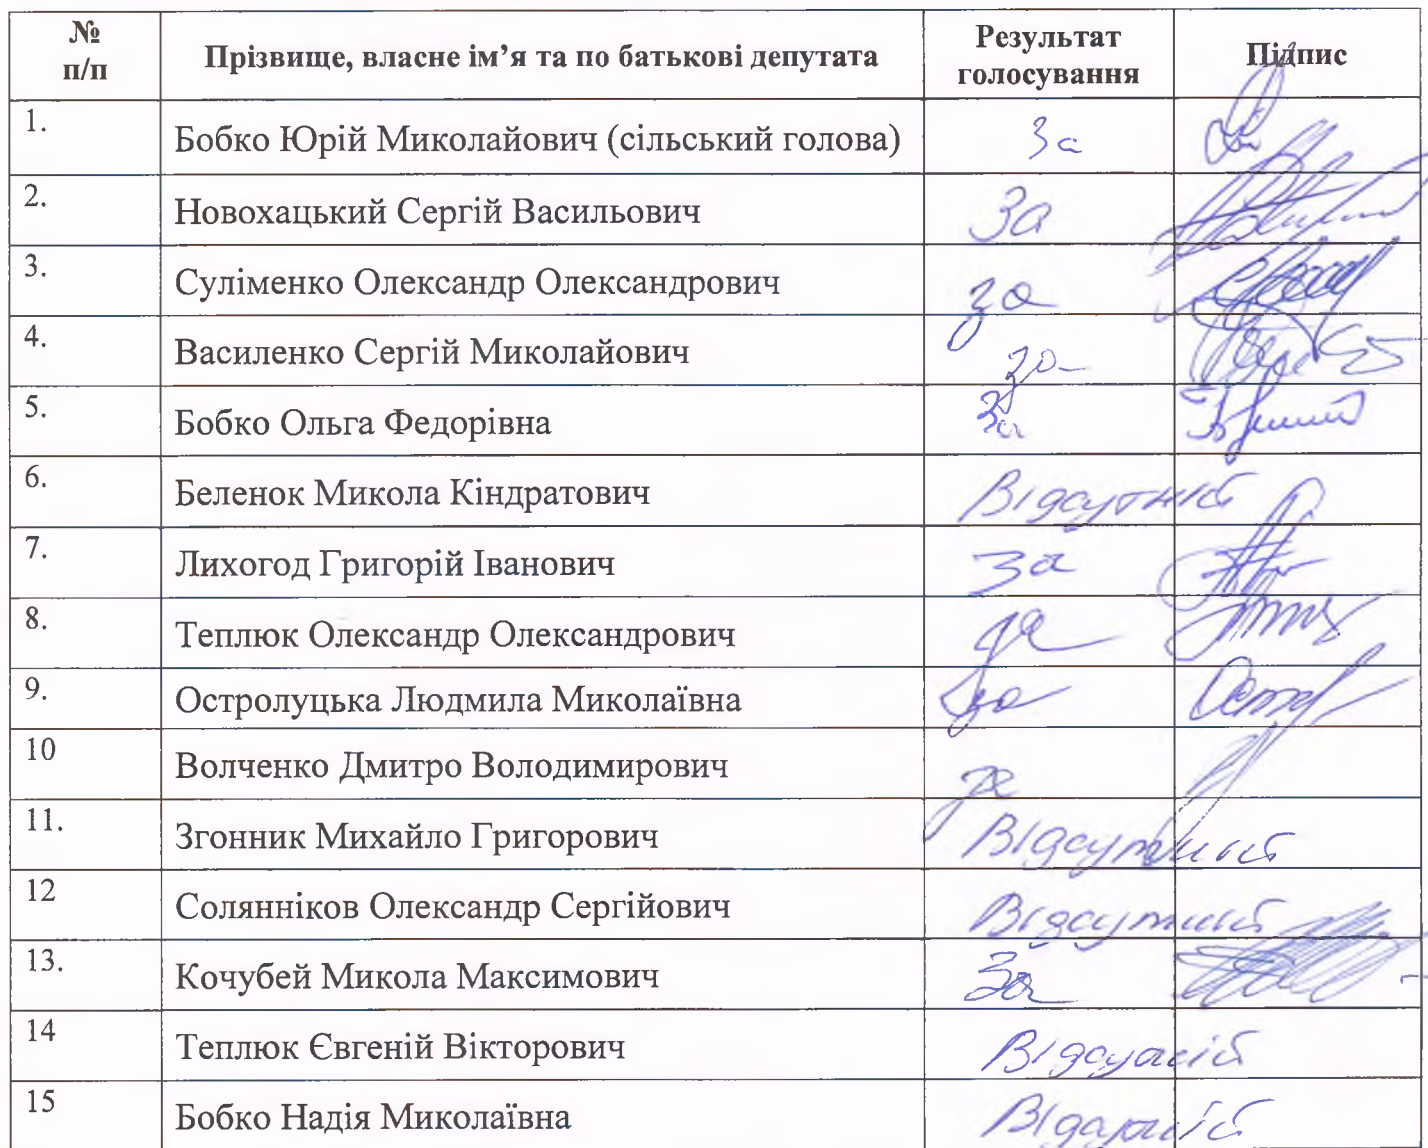 № п/п Прізвище, власне ім’я та по батькові депутата Результат голосування Підпис
1. Бобко Юрій Миколайович (сільський голова) За
2. Новохацький Сергій Васильович За
3. Суліменко Олександр Олександрович за
4. Василенко Сергій Миколайович за
5. Бобко Ольга Федорівна За
6. Беленок Микола Кіндратович Відсутній
7. Лихогод Григорій Іванович За
8. Теплюк Олександр Олександрович за
9. Остролуцька Людмила Миколаївна за
10 Волченко Дмитро Володимирович за
11. Згонник Михайло Григорович Відсутній
12 Солянніков Олександр Сергійович Відсутній
13. Кочубей Микола Максимович За
14 Теплюк Євгеній Вікторович Відсутній
15 Бобко Надія Миколаївна